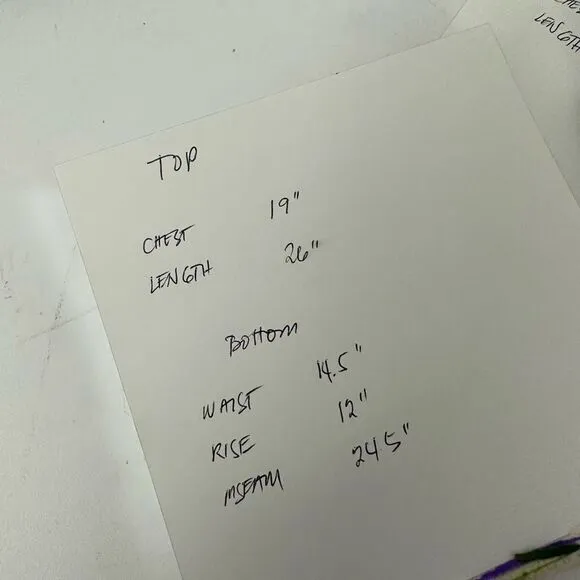 TOP
CHEST 19"
LENGTH 26"
Bottom
WAIST 14.5"
RISE 12"
INSEAM 24.5"
LENGTH